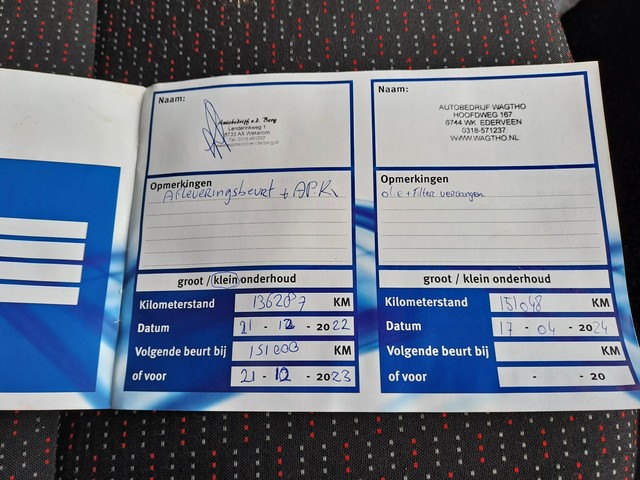 Naam:
Autobedrijf v.d. Berg
Lenderinkweg 1
6733 AX Wekerom
Opmerkingen
Afleveringsbeurt + APK
groot / klein onderhoud
Kilometerstand 136287 KM
Datum 21 - 12 - 2022
Volgende beurt bij 151000 KM
of voor 21 - 12 - 2023
Naam:
AUTOBEDRIJF WAGTHO
HOOFDWEG 167
6744 WK EDERVEEN
0318-571237
WWW.WAGTHO.NL
Opmerkingen
olie + Filter vervangen
groot / klein onderhoud
Kilometerstand 151048 KM
Datum 17 - 04 - 2024
Volgende beurt bij KM
of voor - - 20